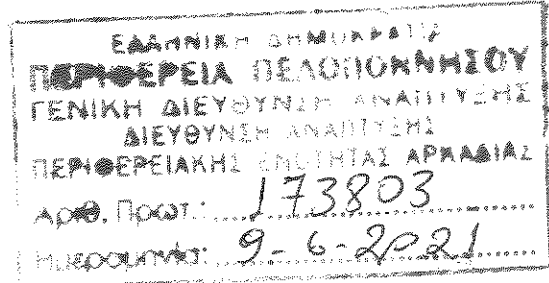 ΕΛΛΗΝΙΚΗ ΔΗΜΟΚΡΑΤΙΑ
ΠΕΡΙΦΕΡΕΙΑ ΠΕΛΟΠΟΝΝΗΣΟΥ
ΓΕΝΙΚΗ ΔΙΕΥΘΥΝΣΗ ΑΝΑΠΤΥΞΗΣ
ΔΙΕΥΘΥΝΣΗ ΑΝΑΠΤΥΞΗΣ
ΠΕΡΙΦΕΡΕΙΑΚΗΣ ΕΝΟΤΗΤΑΣ ΑΡΚΑΔΙΑΣ
Αριθ. Πρωτ.: 173803
Ημερομηνία: 9-6-2021